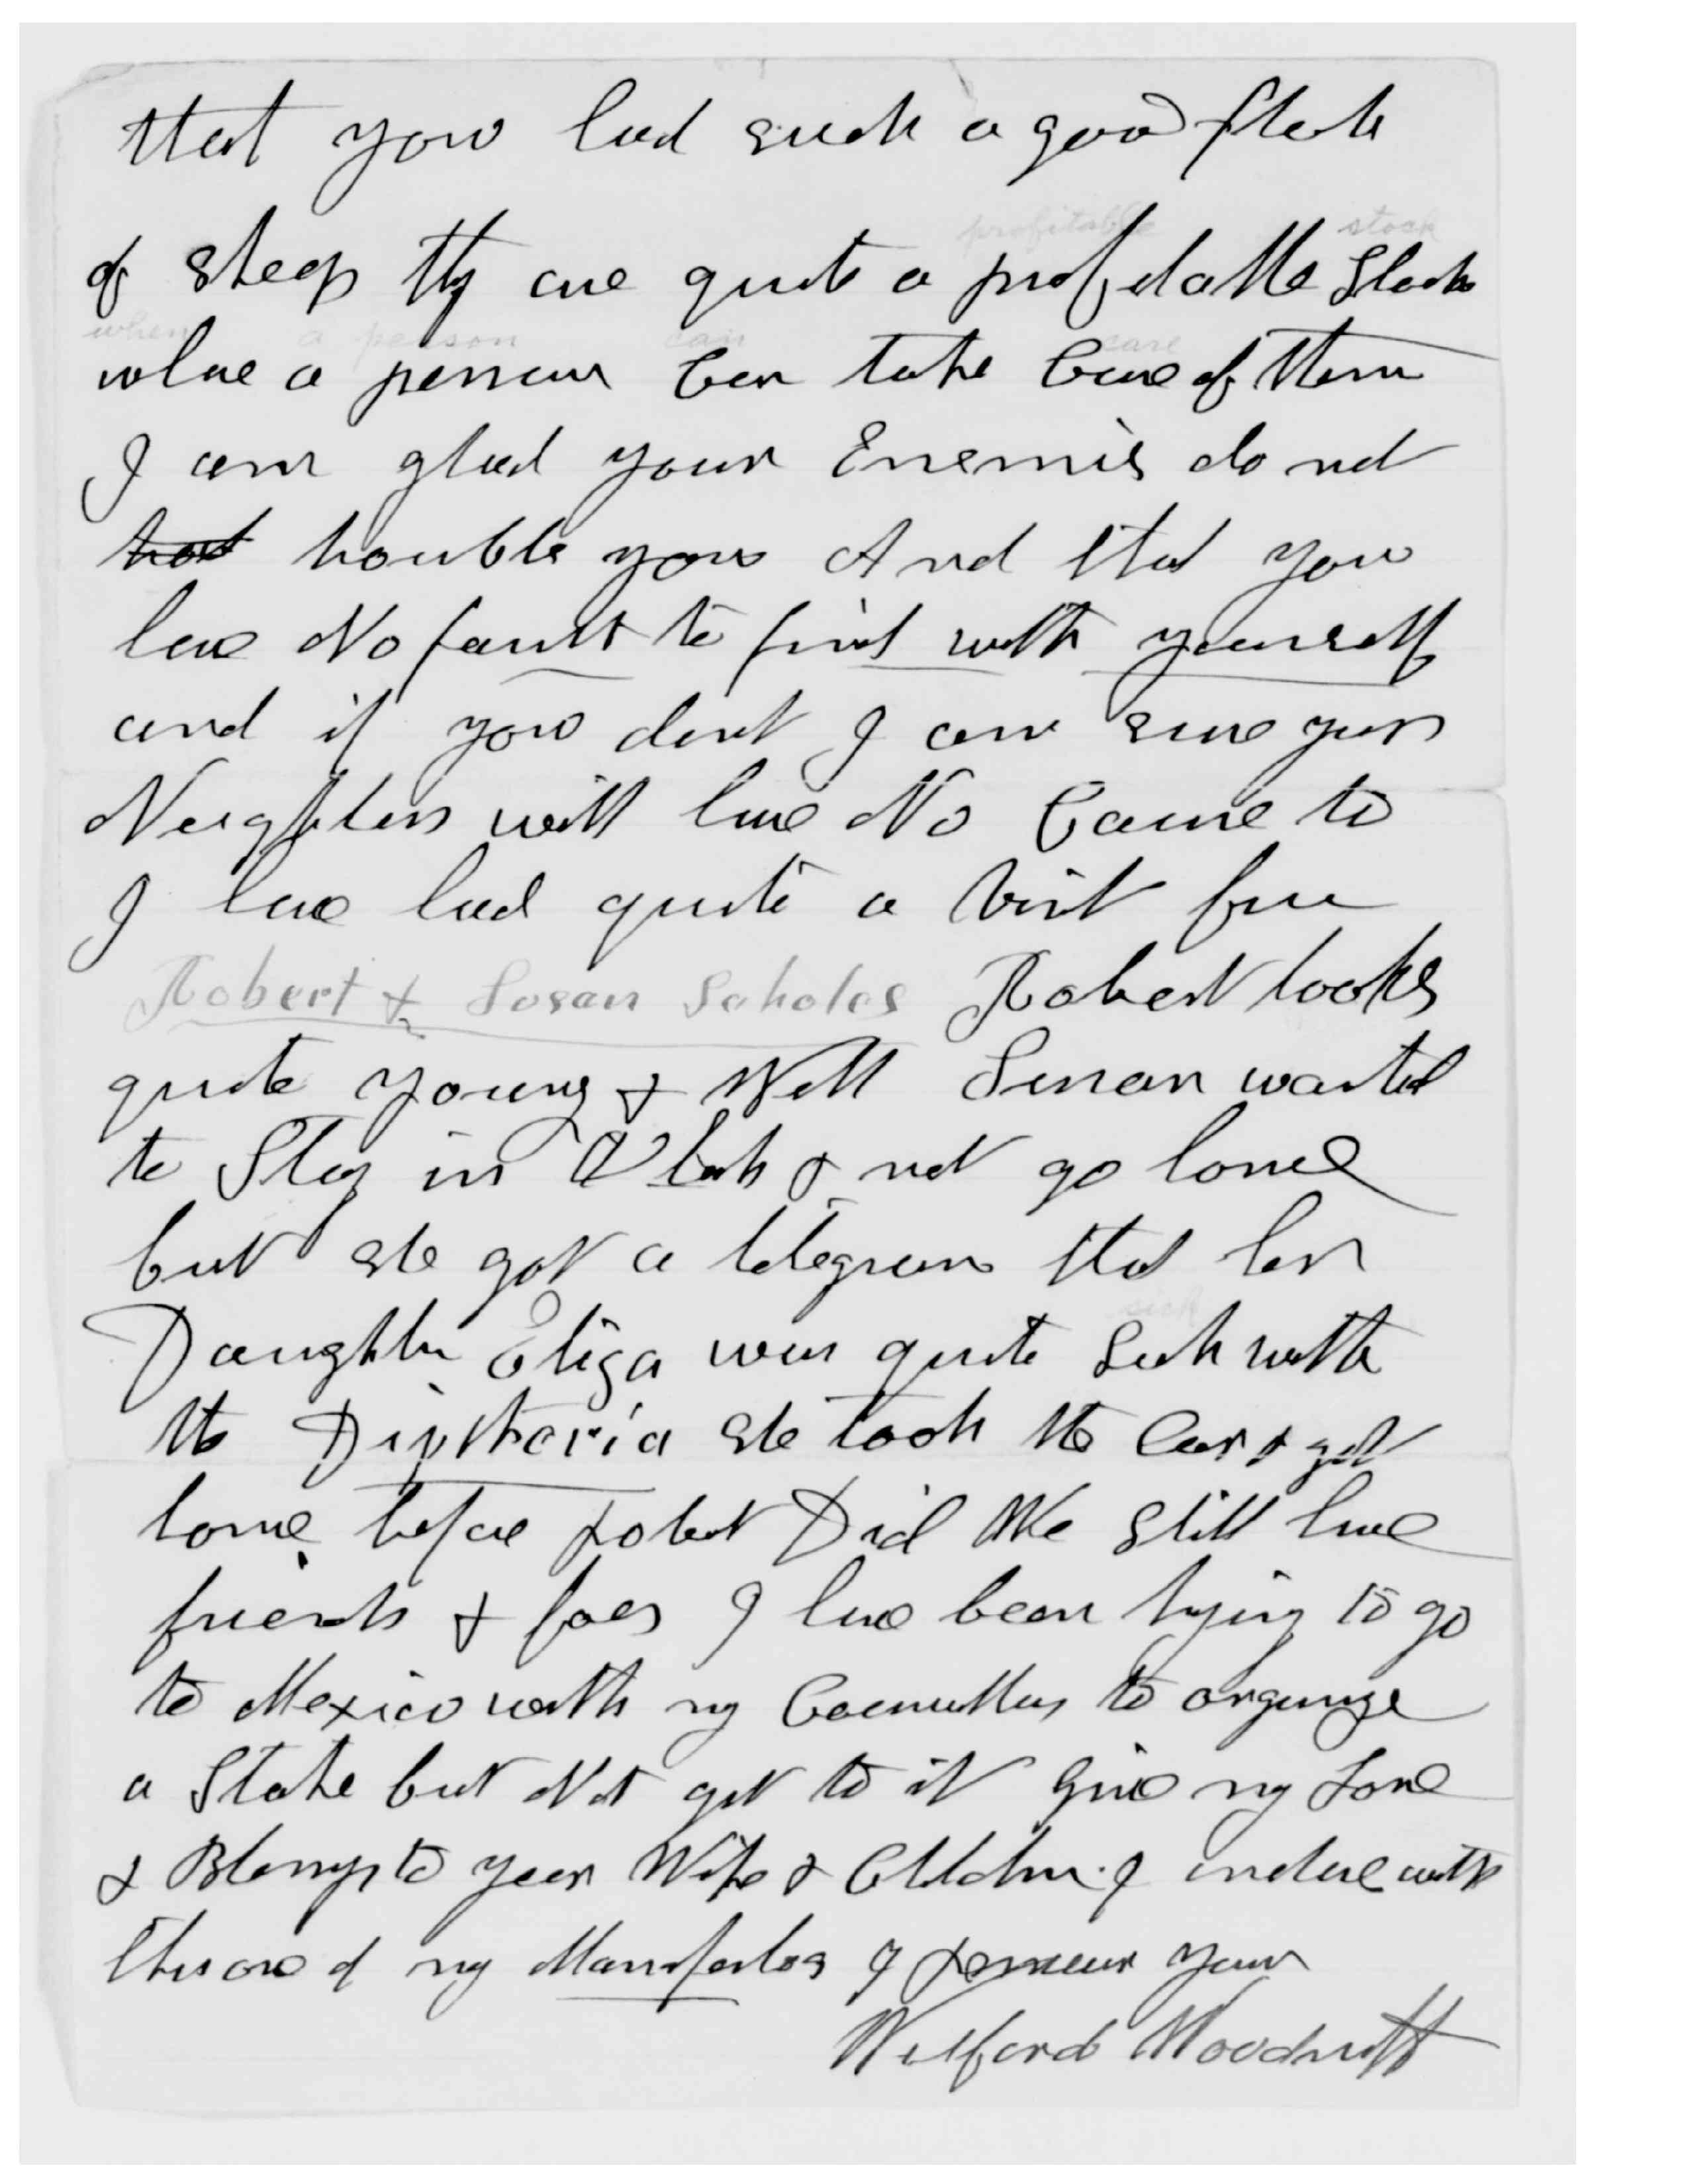 that you had such a good flock
profitable stock
of sheep they are quite a profitable Stock
when a person can care
whare a person Can take Care of them
I am glad your Enemies do not
trouble you And that you
have No fault to find with yourself
and if you dont I am sure your
Neighbors will have No Cause to
I have had quite a visit from
Robert & Susan Scholes Robert looks
quite young & Well Susan wanted
to Stay in Utah & not go home
but she got a telegram that her
sick
Daughter Eliza was quite Sick with
the Diptheria she took the Cars & got
home before Robert Did We still have
friends & foes I have been trying to go
to Mexico with my Councillors to organize
a Stake but Not got to it give my Love
& Blessings to your Wife & Children I enclose with
this one of my Manifestos I remain your
Wilford Woodruff